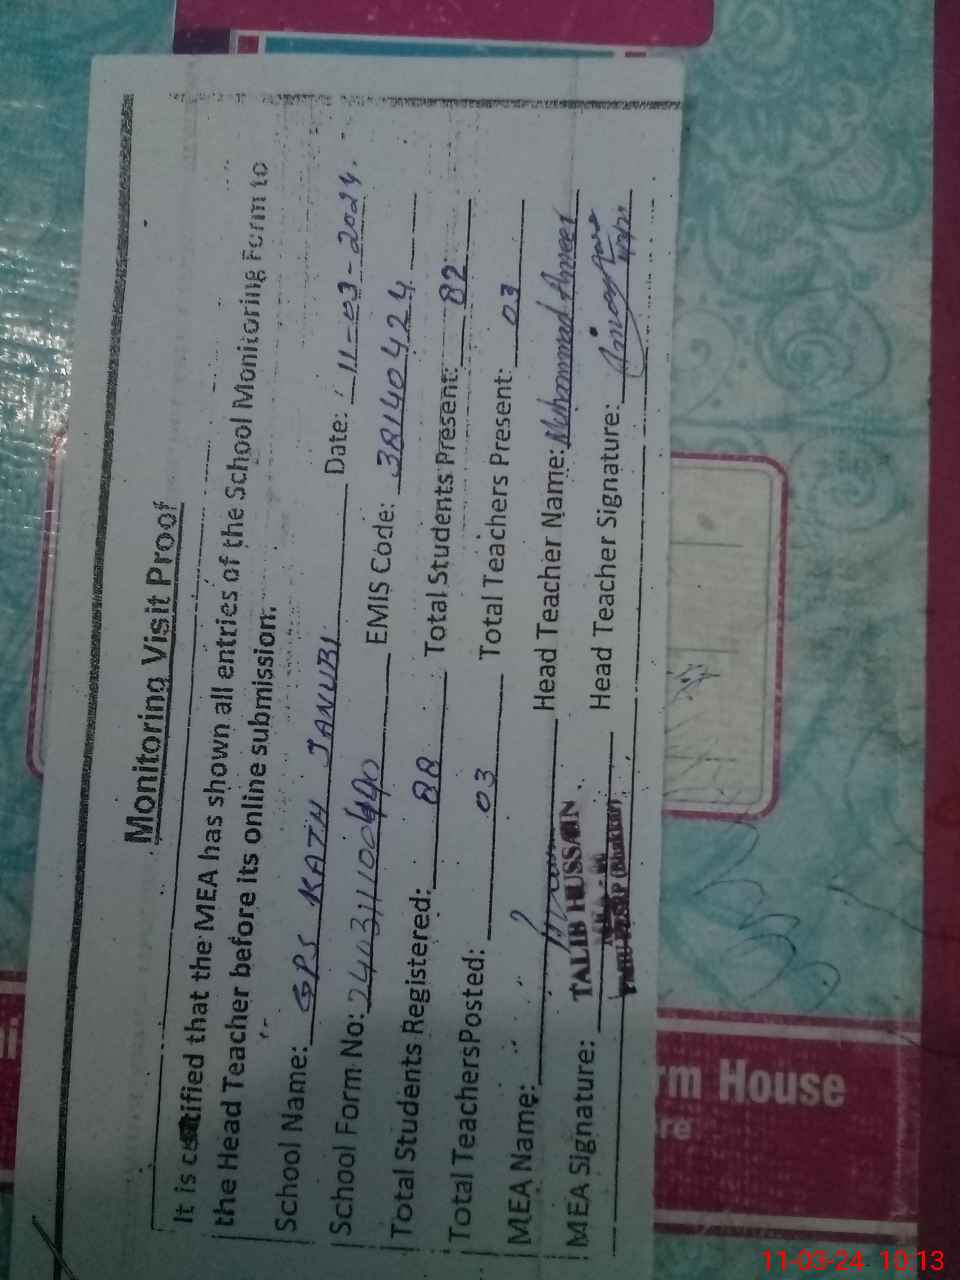 Monitoring Visit Proof
It is certified that the MEA has shown all entries of the School Monitoring Form to
the Head Teacher before its online submission.
School Name: GPS KATH JANUBI Date: 11-03-2024.
School Form No: EMIS Code: 38140424
Total Students Registered: 88 Total Students Present: 82
Total TeachersPosted: 03 Total Teachers Present: 03
MEA Name: Head Teacher Name: Muhammad Ameer
MEA Signature: TALIB HUSSAIN Head Teacher Signature:
rm House
re
11-03-24 10:13